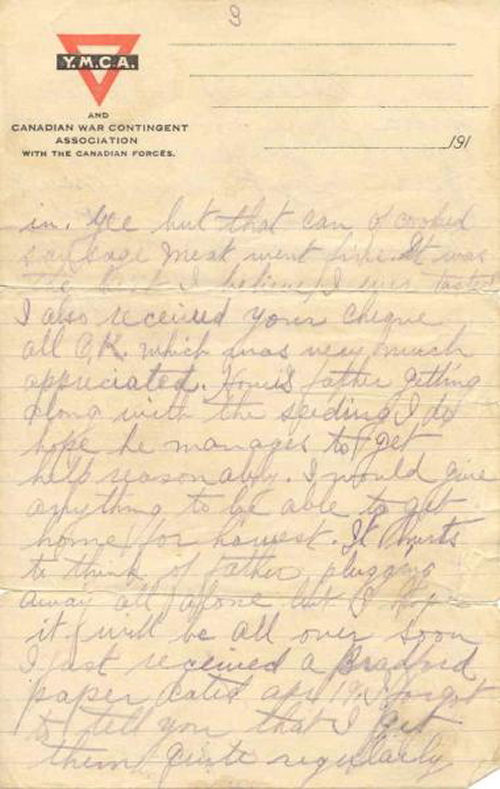 3
Y.M.C.A.
AND
CANADIAN WAR CONTINGENT
ASSOCIATION
WITH THE CANADIAN FORCES.
191
in. Gee but that can of cooked
sausage meat went fine. It was
the best I believe I ever tasted
I also received your cheque
all O.K. which was very much
appreciated. How is father getting
along with the seeding I do
hope he manages to get
help reasonably. I would give
anything to be able to get
home for harvest. It hurts
to think of father plugging
away all alone but I hope
it will be all over soon
I just received a Bradford
paper dated apr I forgot
to tell you that I get
them quite regularly